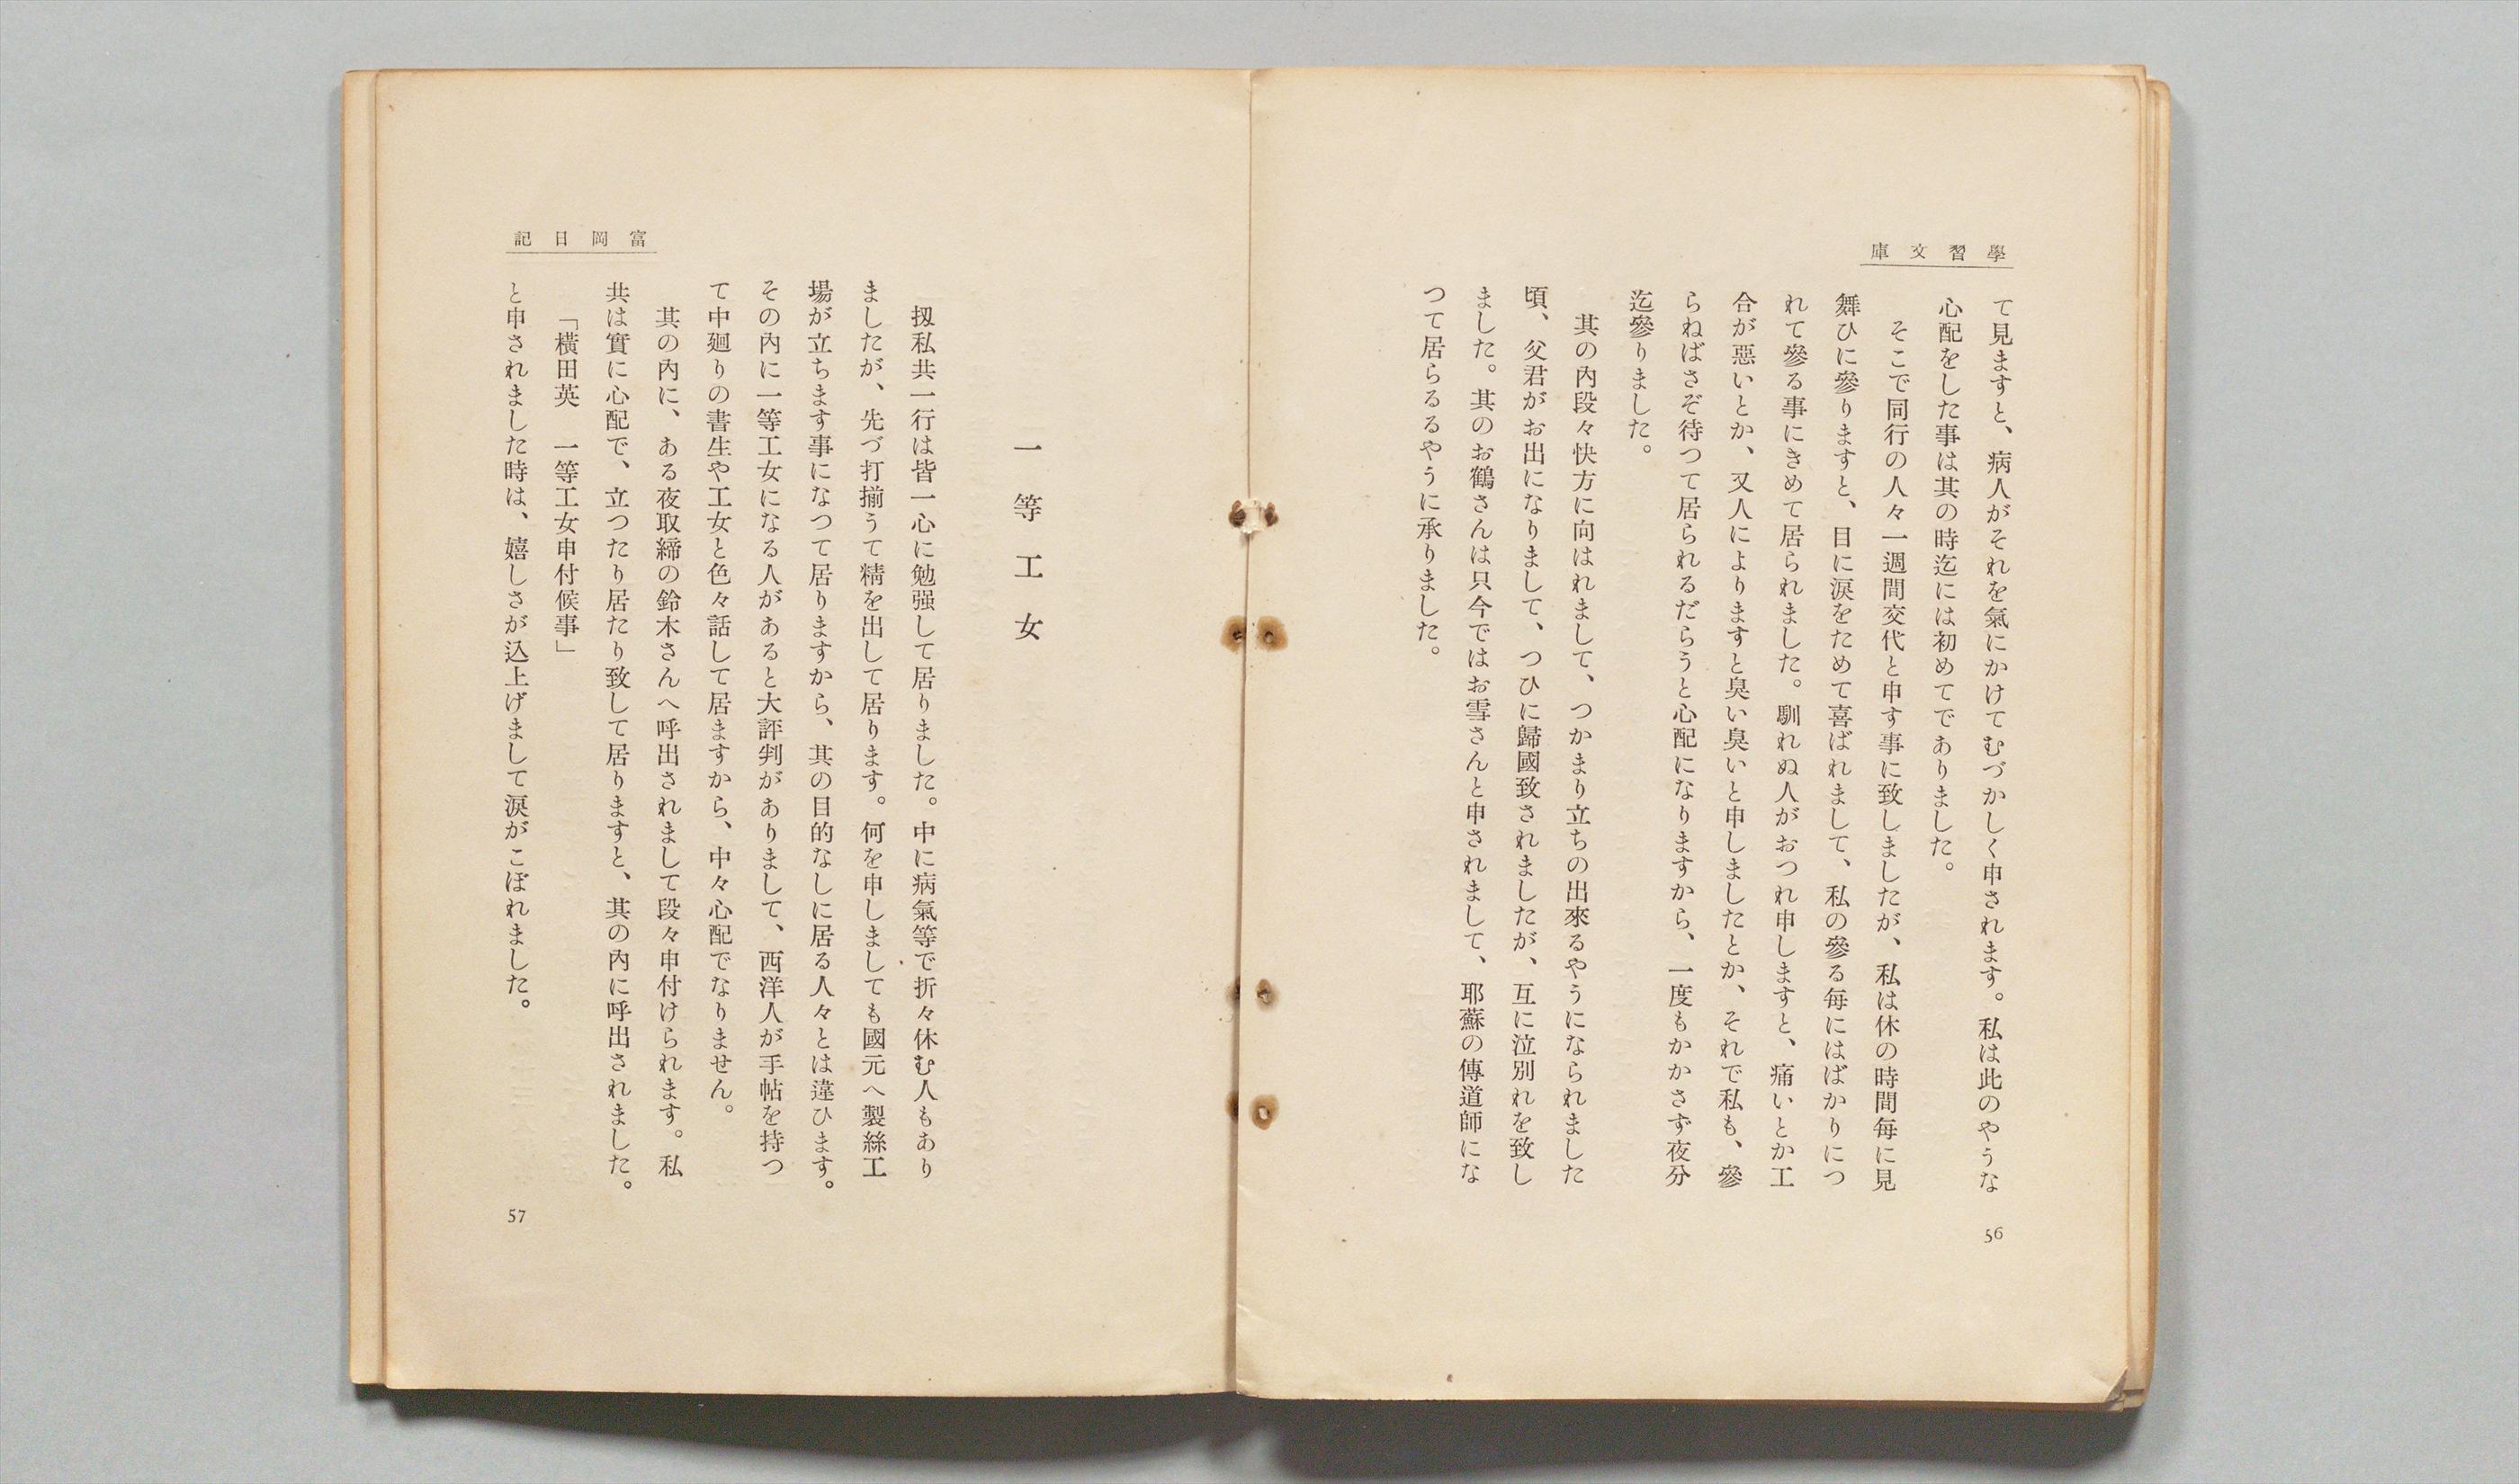 學習文庫
て見ますと、病人がそれを氣にかけてむづかしく申されます。私は此のやうな
心配をした事は其の時迄には初めてでありました。
そこで同行の人々一週間交代と申す事に致しましたが、私は休の時間每に見
舞ひに參りますと、目に淚をためて喜ばれまして、私の參る每にはばかりにつ
れて參る事にきめて居られました。馴れぬ人がおつれ申しますと、痛いとか工
合が惡いとか、又人によりますと臭い臭いと申しましたとか、それで私も、參
らねばさぞ待つて居られるだらうと心配になりますから、一度もかかさず夜分
迄參りました。
其の內段々快方に向はれまして、つかまり立ちの出來るやうになられました
頃、父君がお出になりまして、つひに歸國致されましたが、互に泣別れを致し
ました。其のお鶴さんは只今ではお雪さんと申されまして、耶蘇の傳道師にな
つて居らるるやうに承りました。
56
富岡日記
一等工女
扨私共一行は皆一心に勉强して居りました。中に病氣等で折々休む人もあり
ましたが、先づ打揃うて精を出して居ります。何を申しましても國元へ製絲工
場が立ちます事になつて居りますから、其の目的なしに居る人々とは違ひます。
その內に一等工女になる人があると大評判がありまして、西洋人が手帖を持つ
て中廻りの書生や工女と色々話して居ますから、中々心配でなりません。
其の內に、ある夜取締の鈴木さんへ呼出されまして段々申付けられます。私
共は實に心配で、立つたり居たり致して居りますと、其の內に呼出されました。
「橫田英　一等工女申付候事」
と申されました時は、嬉しさが込上げまして淚がこぼれました。
57